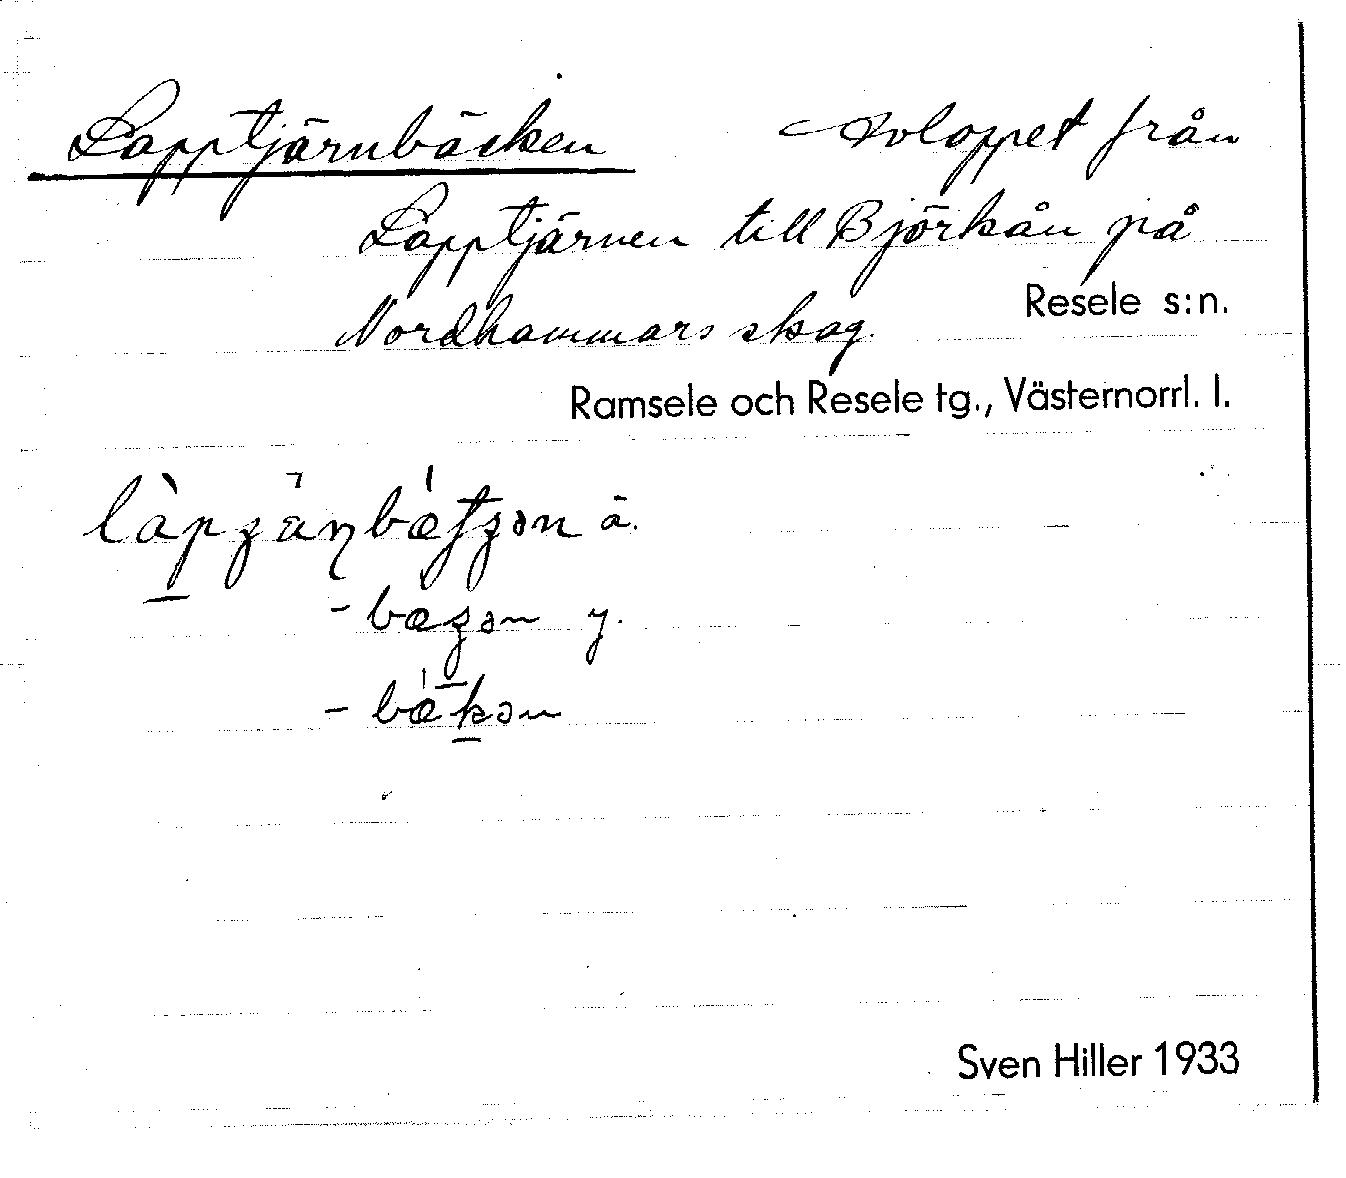 Lapptjärnbäcken Avloppet från
Lapptjärnen till Björkån på
Resele s:n.
Nordhammars skog.
Ramsele och Resele tg., Västernorrl. l.
ä.
y.
Sven Hiller 1933